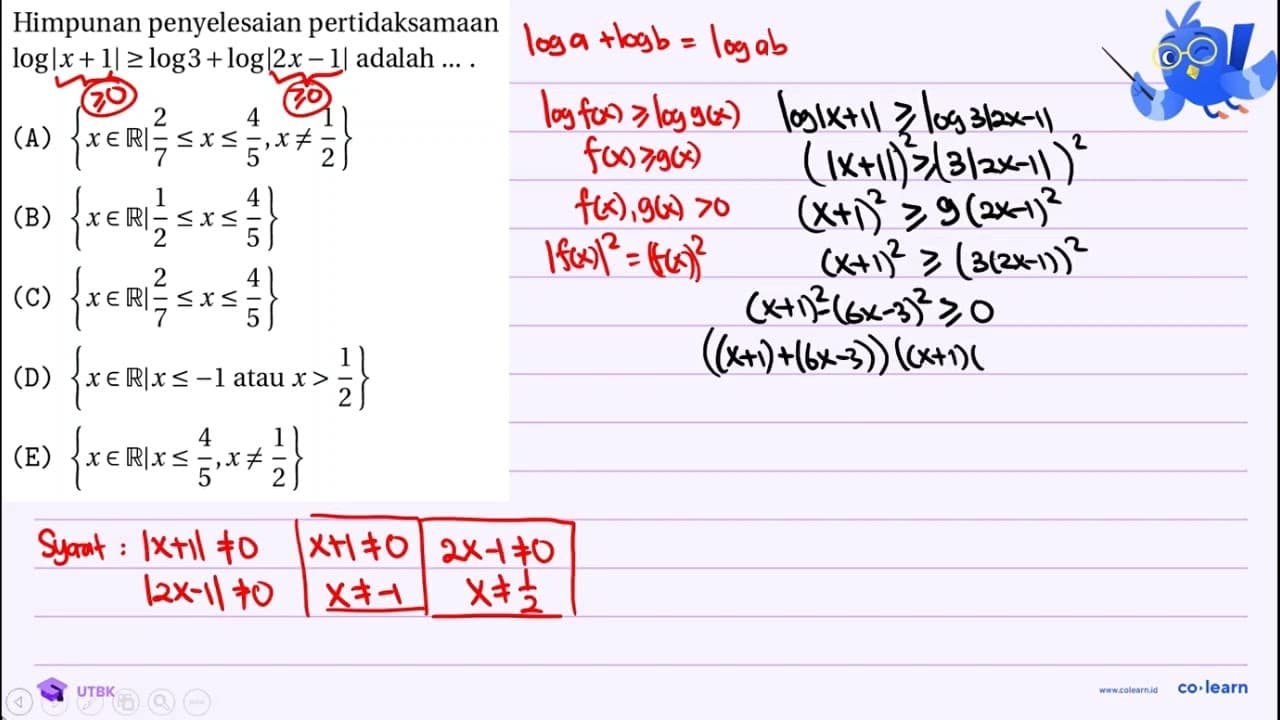 Himpunan penyelesaian pertidaksamaan
log|x + 1| ≥ log3 + log|2x − 1| adalah ... .
≥0 ≥0
(A) {x ∈ ℝ| 2/7 ≤ x ≤ 4/5, x ≠ 1/2}
(B) {x ∈ ℝ| 1/2 ≤ x ≤ 4/5}
(C) {x ∈ ℝ| 2/7 ≤ x ≤ 4/5}
(D) {x ∈ ℝ|x ≤ −1 atau x > 1/2}
(E) {x ∈ ℝ|x ≤ 4/5, x ≠ 1/2}
log a + log b = log ab
log f(x) ≥ log g(x)
f(x) ≥ g(x)
f(x), g(x) > 0
|f(x)|² = (f(x))²
log|x+1| ≥ log 3|2x-1|
(|x+1|)² ≥ (3|2x-1|)²
(x+1)² ≥ 9(2x-1)²
(x+1)² ≥ (3(2x-1))²
(x+1)² - (6x-3)² ≥ 0
((x+1)+(6x-3))((x+1)(
Syarat : |x+1| ≠ 0
|2x-1| ≠ 0
x+1 ≠ 0
x ≠ -1
2x-1 ≠ 0
x ≠ 1/2
UTBK
www.colearn.id
co·learn